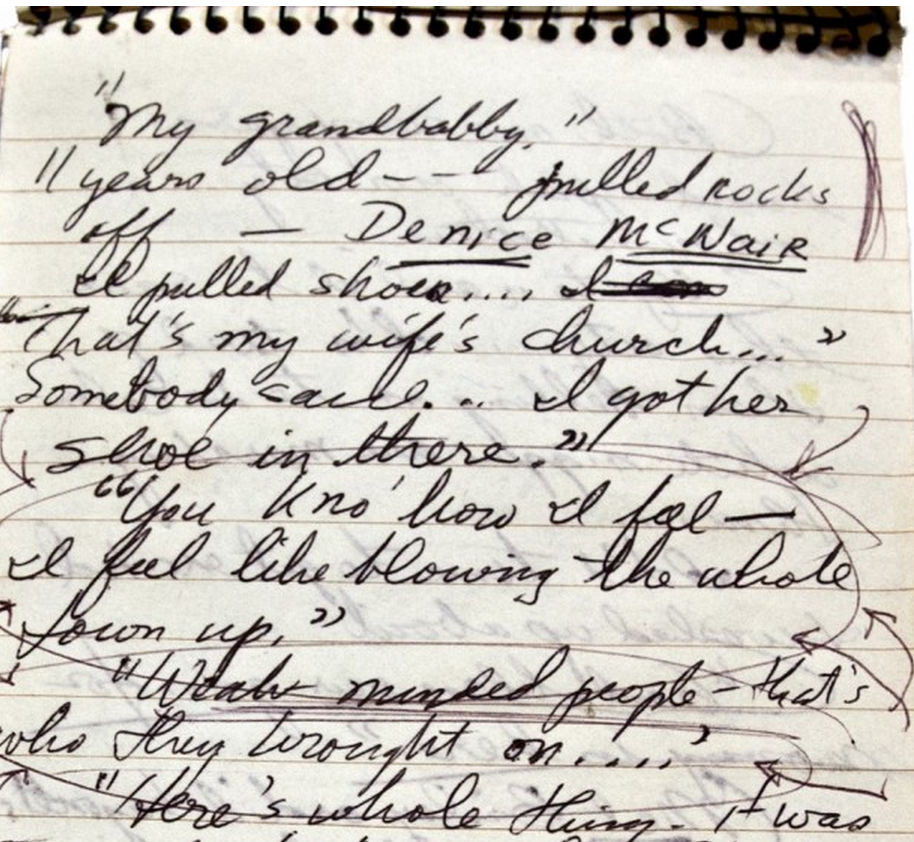 "My grandbabby,"
11 years old -- - pulled rocks
off — Denice McNair
I pulled shoes.... I
That's my wife's church... "
Somebody said... I got her
shoe in there."
"You kno' how I feel —
I feel like blowing the whole
town up."
"Weak minded people - that's
who they brought on....'
"Here's whole thing - it was